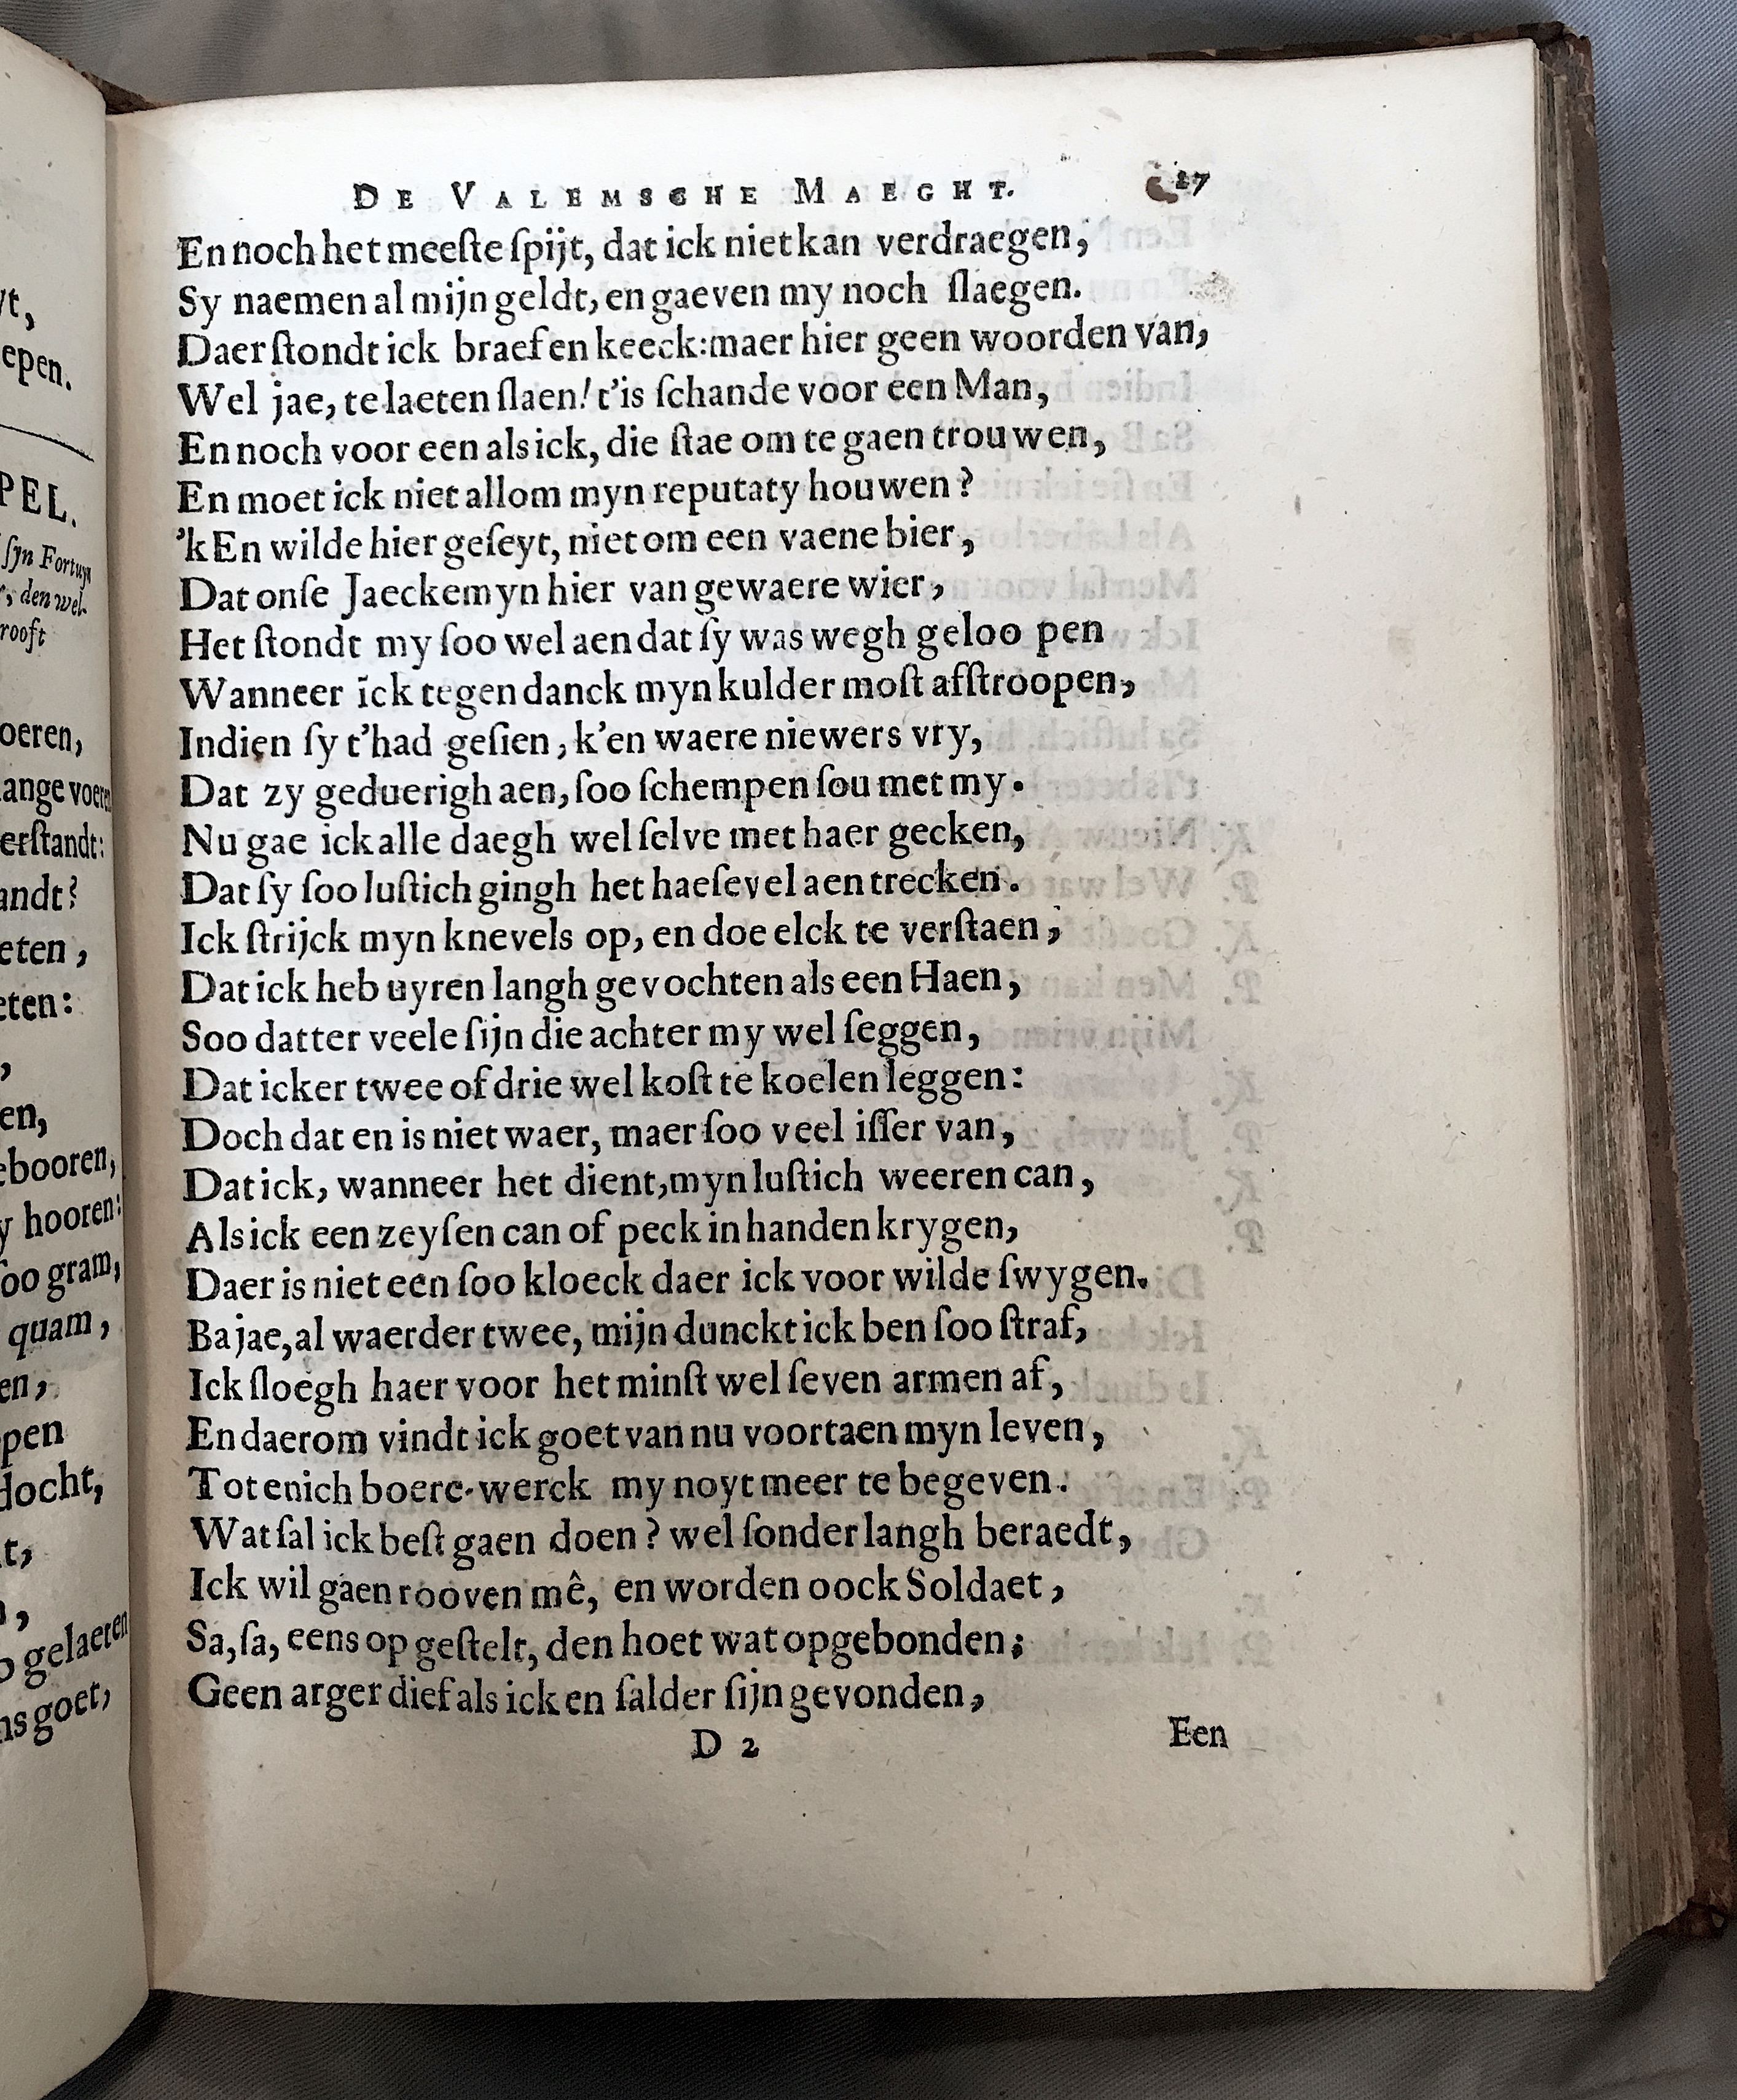 DE VALEMSCHE MAEGHT. 27
En noch het meeſte ſpijt, dat ick niet kan verdraegen,
Sy naemen al mijn geldt, en gaeven my noch ſlaegen.
Daer ſtondt ick braef en keeck: maer hier geen woorden van,
Wel jae, te laeten ſlaen! t'is ſchande voor een Man,
En noch voor een als ick, die ſtae om te gaen trouwen,
En moet ick niet allom myn reputaty houwen?
'k En wilde hier geſeyt, niet om een vaene bier,
Dat onſe Jaeckemyn hier van gewaere wier,
Het ſtondt my ſoo wel aen dat ſy was wegh geloo pen
Wanneer ick tegen danck myn kulder moſt afſtroopen,
Indien ſy t'had geſien, k'en waere niewers vry,
Dat zy geduerigh aen, ſoo ſchempen ſou met my.
Nu gae ick alle daegh wel ſelve met haer gecken,
Dat ſy ſoo luſtich gingh het haeſevel aen trecken.
Ick ſtrijck myn knevels op, en doe elck te verſtaen,
Dat ick heb uyren langh gevochten als een Haen,
Soo datter veele ſijn die achter my wel ſeggen,
Dat icker twee of drie wel koſt te koelen leggen:
Doch dat en is niet waer, maer ſoo veel iſſer van,
Dat ick, wanneer het dient, myn luſtich weeren can,
Als ick een zeyſen can of peck in handen krygen,
Daer is niet een ſoo kloeck daer ick voor wilde ſwygen.
Ba jae, al waerder twee, mijn dunckt ick ben ſoo ſtraf,
Ick ſloegh haer voor het minſt wel ſeven armen af,
En daerom vindt ick goet van nu voortaen myn leven,
Tot enich boere-werck my noyt meer te begeven.
Wat ſal ick beſt gaen doen? wel ſonder langh beraedt,
Ick wil gaen rooven mê, en worden oock Soldaet,
Sa, ſa, eens op geſtelt, den hoet wat opgebonden;
Geen arger dief als ick en ſalder ſijn gevonden,
D 2 Een
epen.
PEL.
ſyn Fortuyn
, den wel-
rooft
oeren,
ange voeren
erſtandt:
andt?
eten,
eten:
en,
ebooren,
y hooren:
ſoo gram,
quam,
en,
pen
docht,
t,
gelaeten
ns goet,